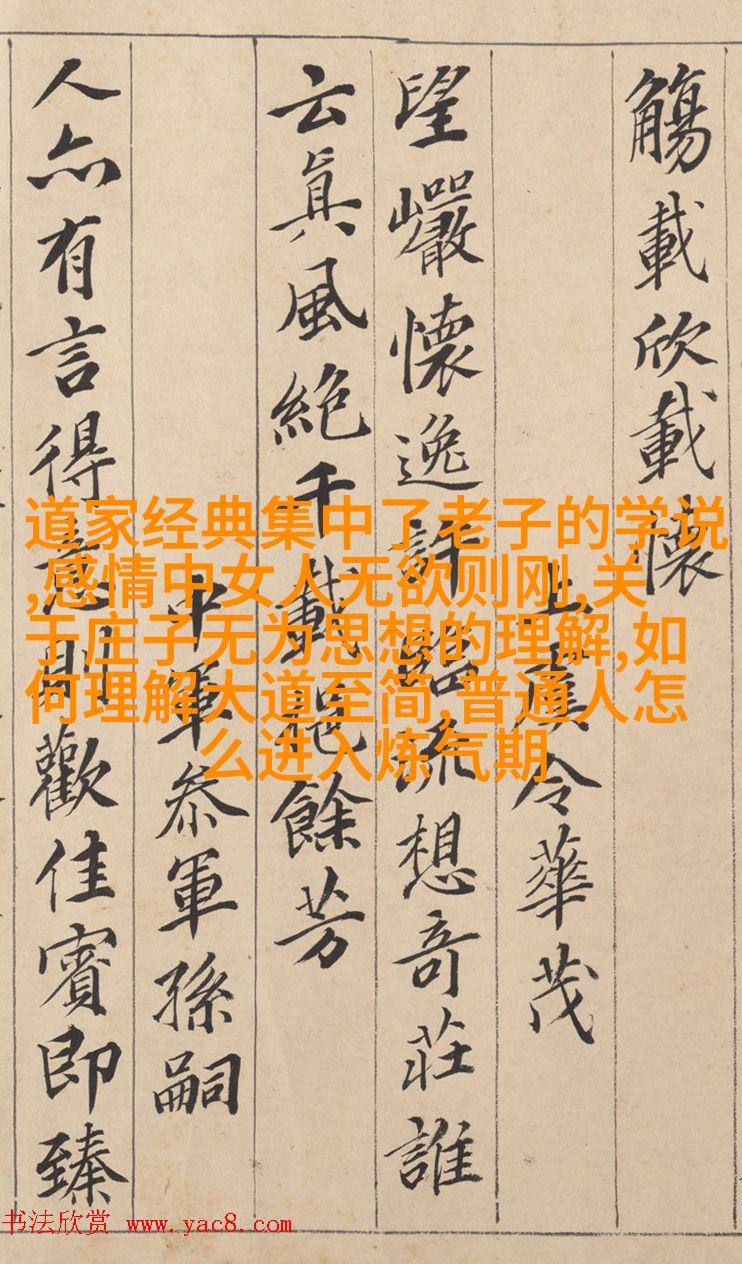 觴載欣載懷
上虞令華茂
望巖懷逸許臨流想奇莊誰
云眞風絶千載挹餘芳
中軍叅軍孫嗣
人亦有言得意則歡佳賓即臻
道家经典集中了老子的学说
,感情中女人无欲则刚,关
于庄子无为思想的理解,如
何理解大道至简,普通人怎
么进入炼气期
书法欣赏 www.yac8.com